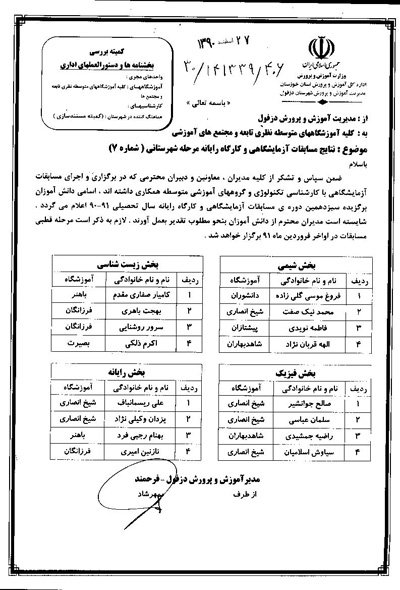 ۲۷ اسفند ۱۳۹۰
۳۰/۱۴۱۳۳۹/۴۰۶
جمهوری اسلامی ایران
وزارت آموزش و پرورش
اداره کل آموزش و پرورش استان خوزستان
مدیریت آموزش و پرورش شهرستان دزفول
کمیته بررسی
بخشنامه ها و دستورالعملهای اداری
واحدهای مجری :
آموزشگاههای : کلیه آموزشگاههای متوسطه نظری تابعه
و مجتمع ها
کارشناسیهای :
هماهنگ کننده در شهرستان : (کمیته مستندسازی)
« باسمه تعالی »
از : مدیریت آموزش و پرورش دزفول
به : کلیه آموزشگاههای متوسطه نظری تابعه و مجتمع های آموزشی
موضوع : نتایج مسابقات آزمایشگاهی و کارگاه رایانه مرحله شهرستانی ( شماره ۷)
باسلام
ضمن سپاس و تشکر از کلیه مدیران ، معاونین و دبیران محترمی که در برگزاری و اجرای مسابقات
آزمایشگاهی با کارشناسی تکنولوژی و گروههای آموزشی متوسطه همکاری داشته اند ، اسامی دانش آموزان
برگزیده سیزدهمین دوره ی مسابقات آزمایشگاهی و کارگاه رایانه سال تحصیلی ۹۱-۹۰ اعلام می گردد .
شایسته است مدیران محترم از دانش آموزان بنحو مطلوب تقدیر بعمل آورند . لازم به ذکر است مرحله قطبی
مسابقات در اواخر فروردین ماه ۹۱ برگزار خواهد شد .
بخش شیمی
ردیف نام و نام خانوادگی آموزشگاه
۱ فروغ موسی گلی زاده دانشوران
۲ محمد نیک صفت شیخ انصاری
۳ فاطمه نویدی پیشتازان
۴ الهه قربان نژاد شاهدبهاران
بخش زیست شناسی
ردیف نام و نام خانوادگی آموزشگاه
۱ کامیار صفاری مقدم باهنر
۲ بهجت باهری فرزانگان
۳ سرور روشنایی فرزانگان
۴ اکرم ذلکی بصیرت
بخش فیزیک
ردیف نام و نام خانوادگی آموزشگاه
۱ صالح جوانشیر شیخ انصاری
۲ سلمان عباسی شیخ انصاری
۳ راضیه جمشیدی شاهدبهاران
۴ سیاوش اسلامیان شیخ انصاری
بخش رایانه
ردیف نام و نام خانوادگی آموزشگاه
۱ علی ریسمانباف شیخ انصاری
۲ یزدان وکیلی نژاد شیخ انصاری
۳ بهنام رجبی فرد باهنر
۴ نازنین امیری فرزانگان
مدیرآموزش و پرورش دزفول - فرحمند
از طرف مهرشاد